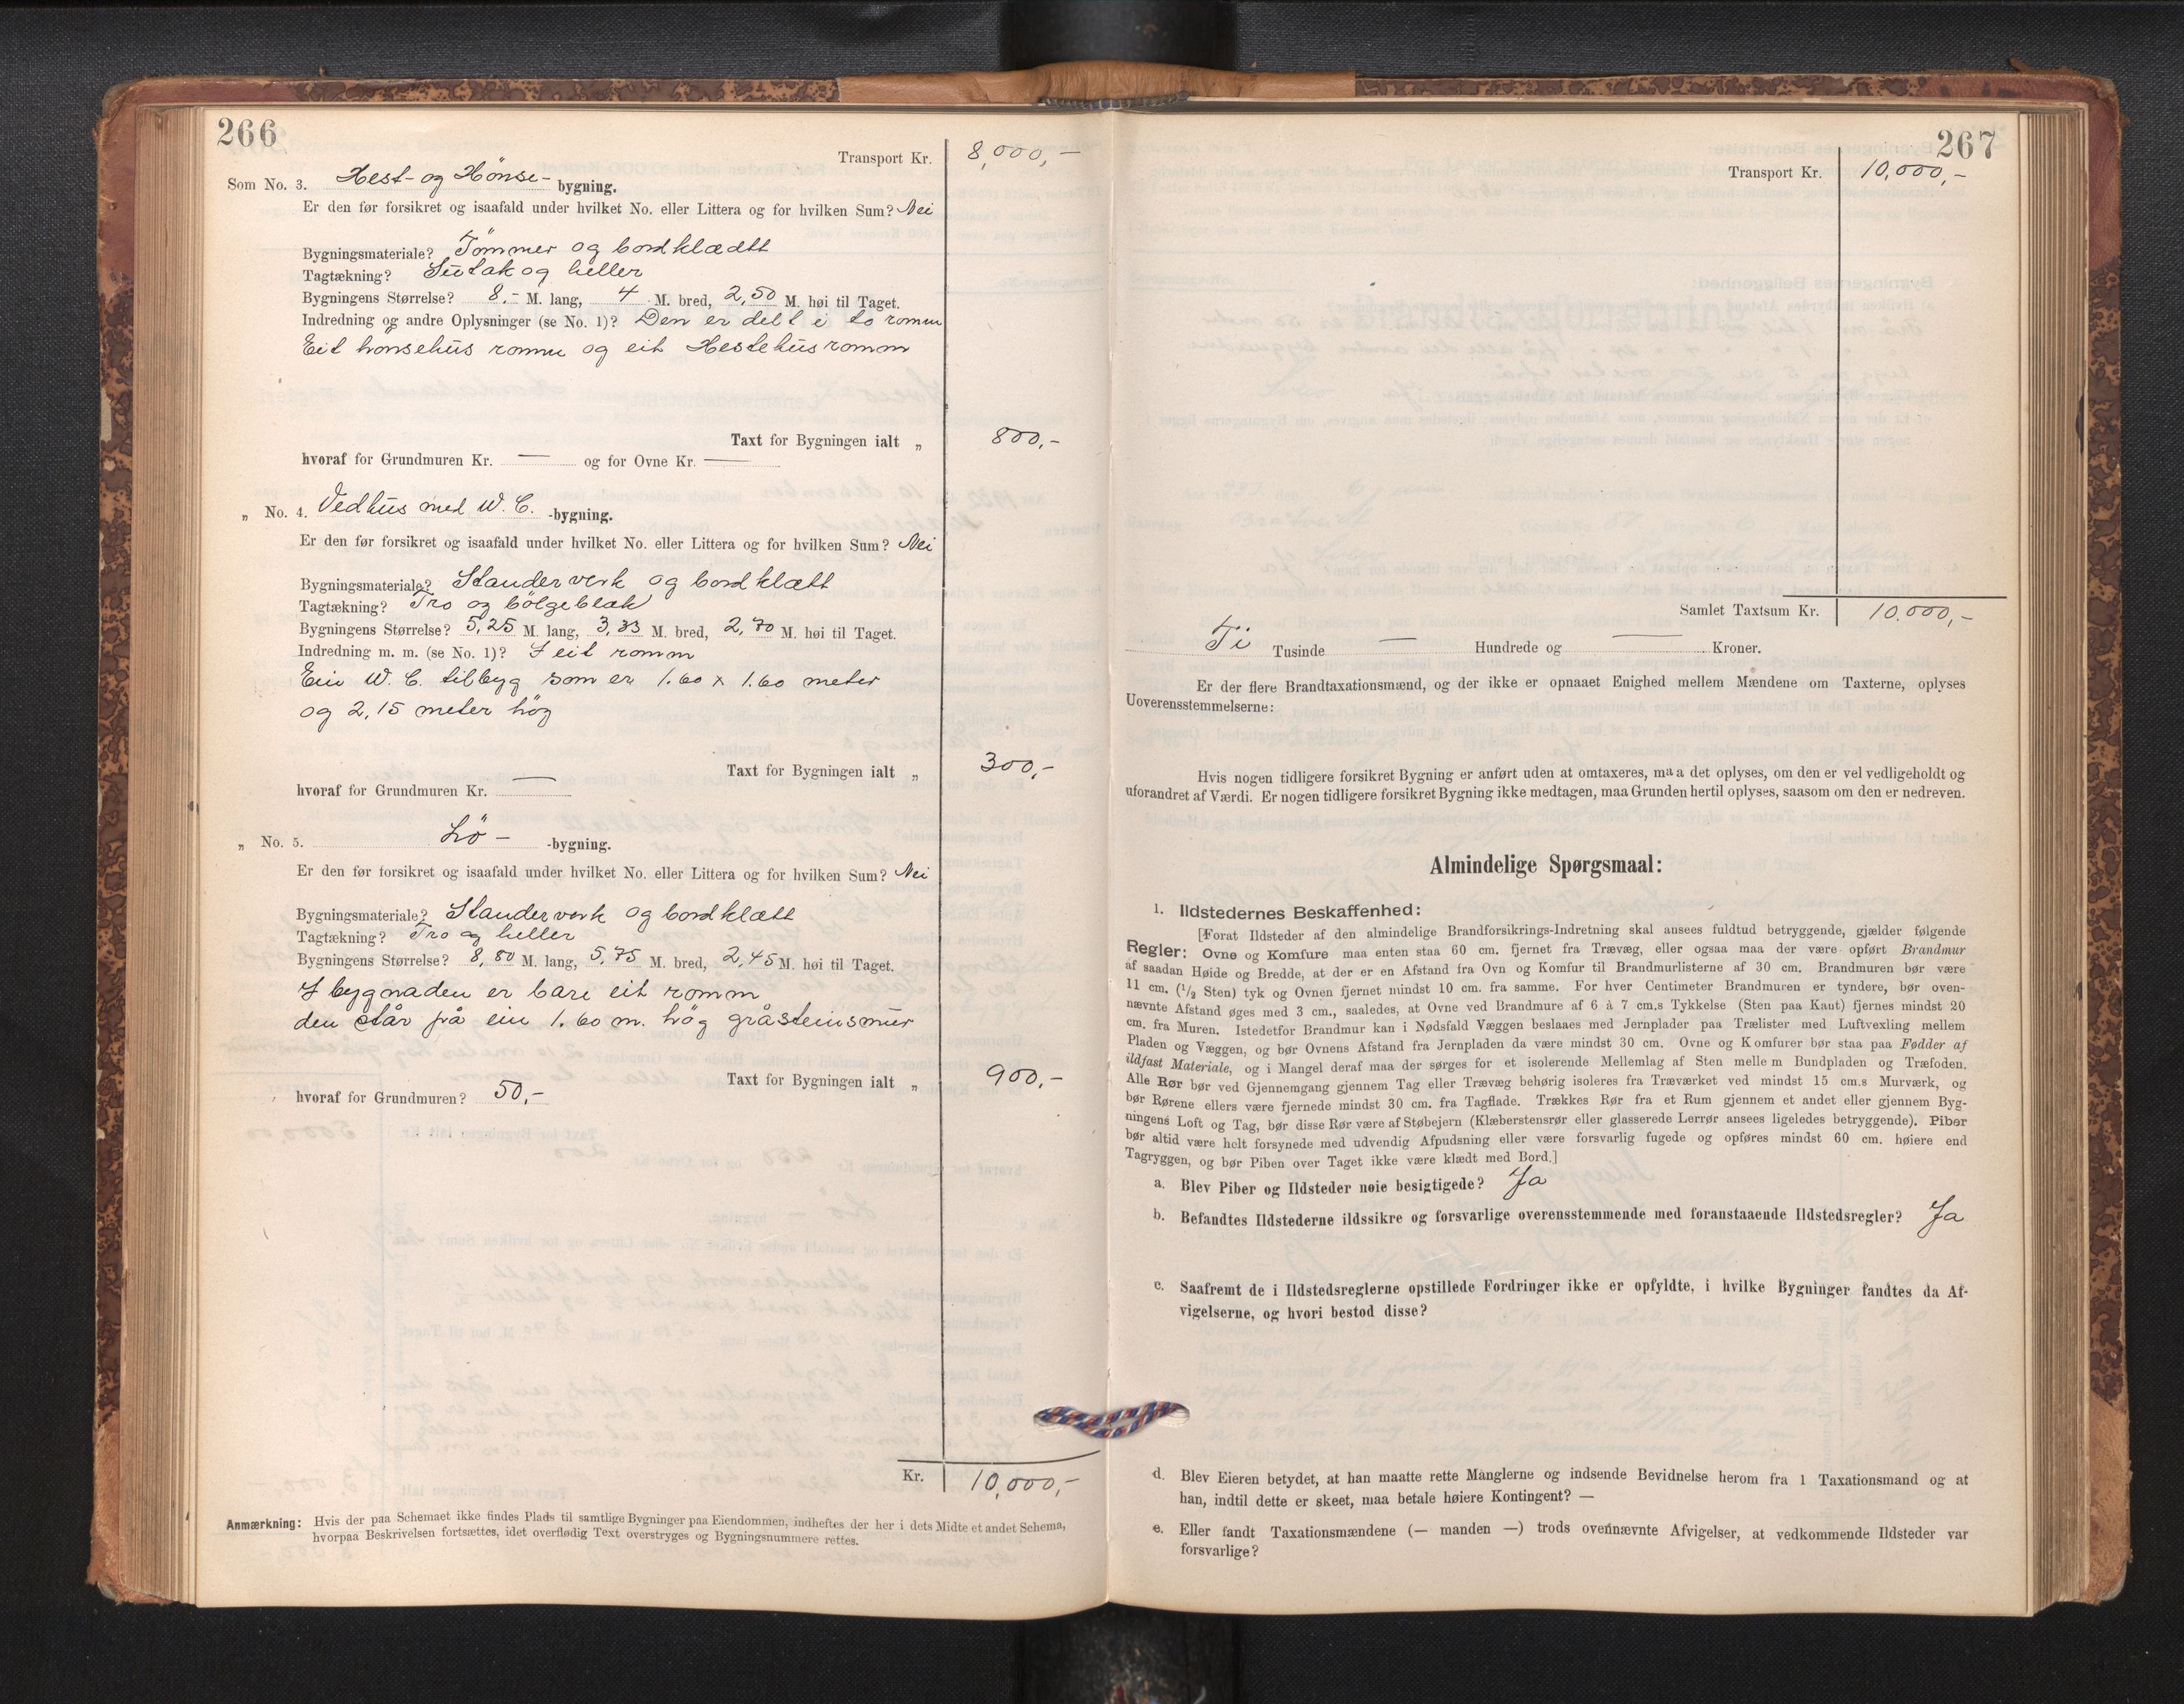 266
Transport Kr. 8,000,-
Som No. 3. Hest- og Hønse- bygning.
Er den før forsikret og isaafald under hvilket No. eller Littera og for hvilken Sum? Nei
Bygningsmateriale? Tömmer og bordklædtt
Tagtækning? Sutak og heller
Bygningens Størrelse? 8.- M. lang, 4 M. bred, 2,50 M. høi til Taget.
Indredning og andre Oplysninger (se No. 1)? Den er delt i to romm
Eit hönsehus romm og eit Hestehus romm
Taxt for Bygningen ialt „ 800,-
hvoraf for Grundmuren Kr. — og for Ovne Kr. —
„ No. 4. Vedhus med W. C. -bygning.
Er den før forsikret og isaafald under hvilket No. eller Littera og for hvilken Sum? Nei
Bygningsmateriale? Stander verk og bordklætt
Tagtækning? Tro og bölgeblek
Bygningens Størrelse? 5,25 M. lang, 3,33 M. bred, 2,70 M. høi til Taget.
Indredning m. m. (se No. 1)? I eit romm
Ein W. C. tilbyg som er 1.60 x 1.60 meter
og 2,15 meter hög
Taxt for Bygningen ialt „ 300,-
hvoraf for Grundmuren Kr. —
„ No. 5. Lö - -bygning.
Er den før forsikret og isaafald under hvilket No. eller Littera og for hvilken Sum? Nei
Bygningsmateriale? Stander verk og bordklætt
Tagtækning? Tro og heller
Bygningens Størrelse? 8,80 M. lang, 5,75 M. bred, 2,45 M. høi til Taget.
I bygnaden er bare eit romm
den står på ein 1.60 m. hög gråsteinsmur
Taxt for Bygningen ialt „ 900,-
hvoraf for Grundmuren? 50,-
Kr. 10,000,-
Anmærkning: Hvis der paa Schemaet ikke findes Plads til samtlige Bygninger paa Eiendommen, indheftes der her i dets Midte et andet Schema,
hvorpaa Beskrivelsen fortsættes, idet overflødig Text overstryges og Bygningsnummere rettes.
267
Transport Kr. 10,000,-
Samlet Taxtsum Kr. 10.000,-
Ti Tusinde — Hundrede og — Kroner.
Er der flere Brandtaxationsmænd, og der ikke er opnaaet Enighed mellem Mændene om Taxterne, oplyses
Uoverensstemmelserne:
Hvis nogen tidligere forsikret Bygning er anført uden at omtaxeres, maa det oplyses, om den er vel vedligeholdt og
uforandret af Værdi. Er nogen tidligere forsikret Bygning ikke medtagen, maa Grunden hertil oplyses, saasom om den er nedreven.
Almindelige Spørgsmaal:
1. Ildstedernes Beskaffenhed:
[Forat Ildsteder af den almindelige Brandforsikrings-Indretning skal ansees fuldtud betryggende, gjælder følgende
Regler: Ovne og Komfure maa enten staa 60 cm. fjernet fra Trævæg, eller ogsaa maa der være opført Brandmur
af saadan Høide og Bredde, at der er en Afstand fra Ovn og Komfur til Brandmurlisterne af 30 cm. Brandmuren bør være
11 cm. (1/2 Sten) tyk og Ovnen fjernet mindst 10 cm. fra samme. For hver Centimeter Brandmuren er tyndere, bør oven-
nævnte Afstand øges med 3 cm., saaledes, at Ovne ved Brandmure af 6 à 7 cm.s Tykkelse (Sten paa Kant) fjernes mindst 20
cm. fra Muren. Istedetfor Brandmur kan i Nødsfald Væggen beslaaes med Jernplader paa Trælister med Luftvexling mellem
Pladen og Væggen, og bør Ovnens Afstand fra Jernpladen da være mindst 30 cm. Ovne og Komfurer bør staa paa Fødder af
ildfast Materiale, og i Mangel deraf maa der sørges for et isolerende Mellemlag af Sten mellem Bundpladen og Træfoden.
Alle Rør bør ved Gjennemgang gjennem Tag eller Trævæg behørig isoleres fra Træværket ved mindst 15 cm.s Murværk, og
bør Rørene ellers være fjernede mindst 30 cm. fra Tagflade. Trækkes Rør fra et Rum gjennem et andet eller gjennem Byg-
ningens Loft og Tag, bør disse Rør være af Støbejern (Klæberstensrør eller glasserede Lerrør ansees ligeledes betryggende). Piber
bør altid være helt forsynede med udvendig Afpudsning eller være forsvarlig fugede og opføres mindst 60 cm. høiere end
Tagryggen, og bør Piben over Taget ikke være klædt med Bord.]
a. Blev Piber og Ildsteder nøie besigtigede? Ja
b. Befandtes Ildstederne ildssikre og forsvarlige overensstemmende med foranstaaende Ildstedsregler? Ja
c. Saafremt de i Ildstedsreglerne opstillede Fordringer ikke er opfyldte, i hvilke Bygninger fandtes da Af-
vigelserne, og hvori bestod disse?
d. Blev Eieren betydet, at han maatte rette Manglerne og indsende Bevidnelse herom fra 1 Taxationsmand og at
han, indtil dette er skeet, maa betale høiere Kontingent? —
e. Eller fandt Taxationsmændene (— manden —) trods ovennævnte Afvigelser, at vedkommende Ildsteder var
forsvarlige?